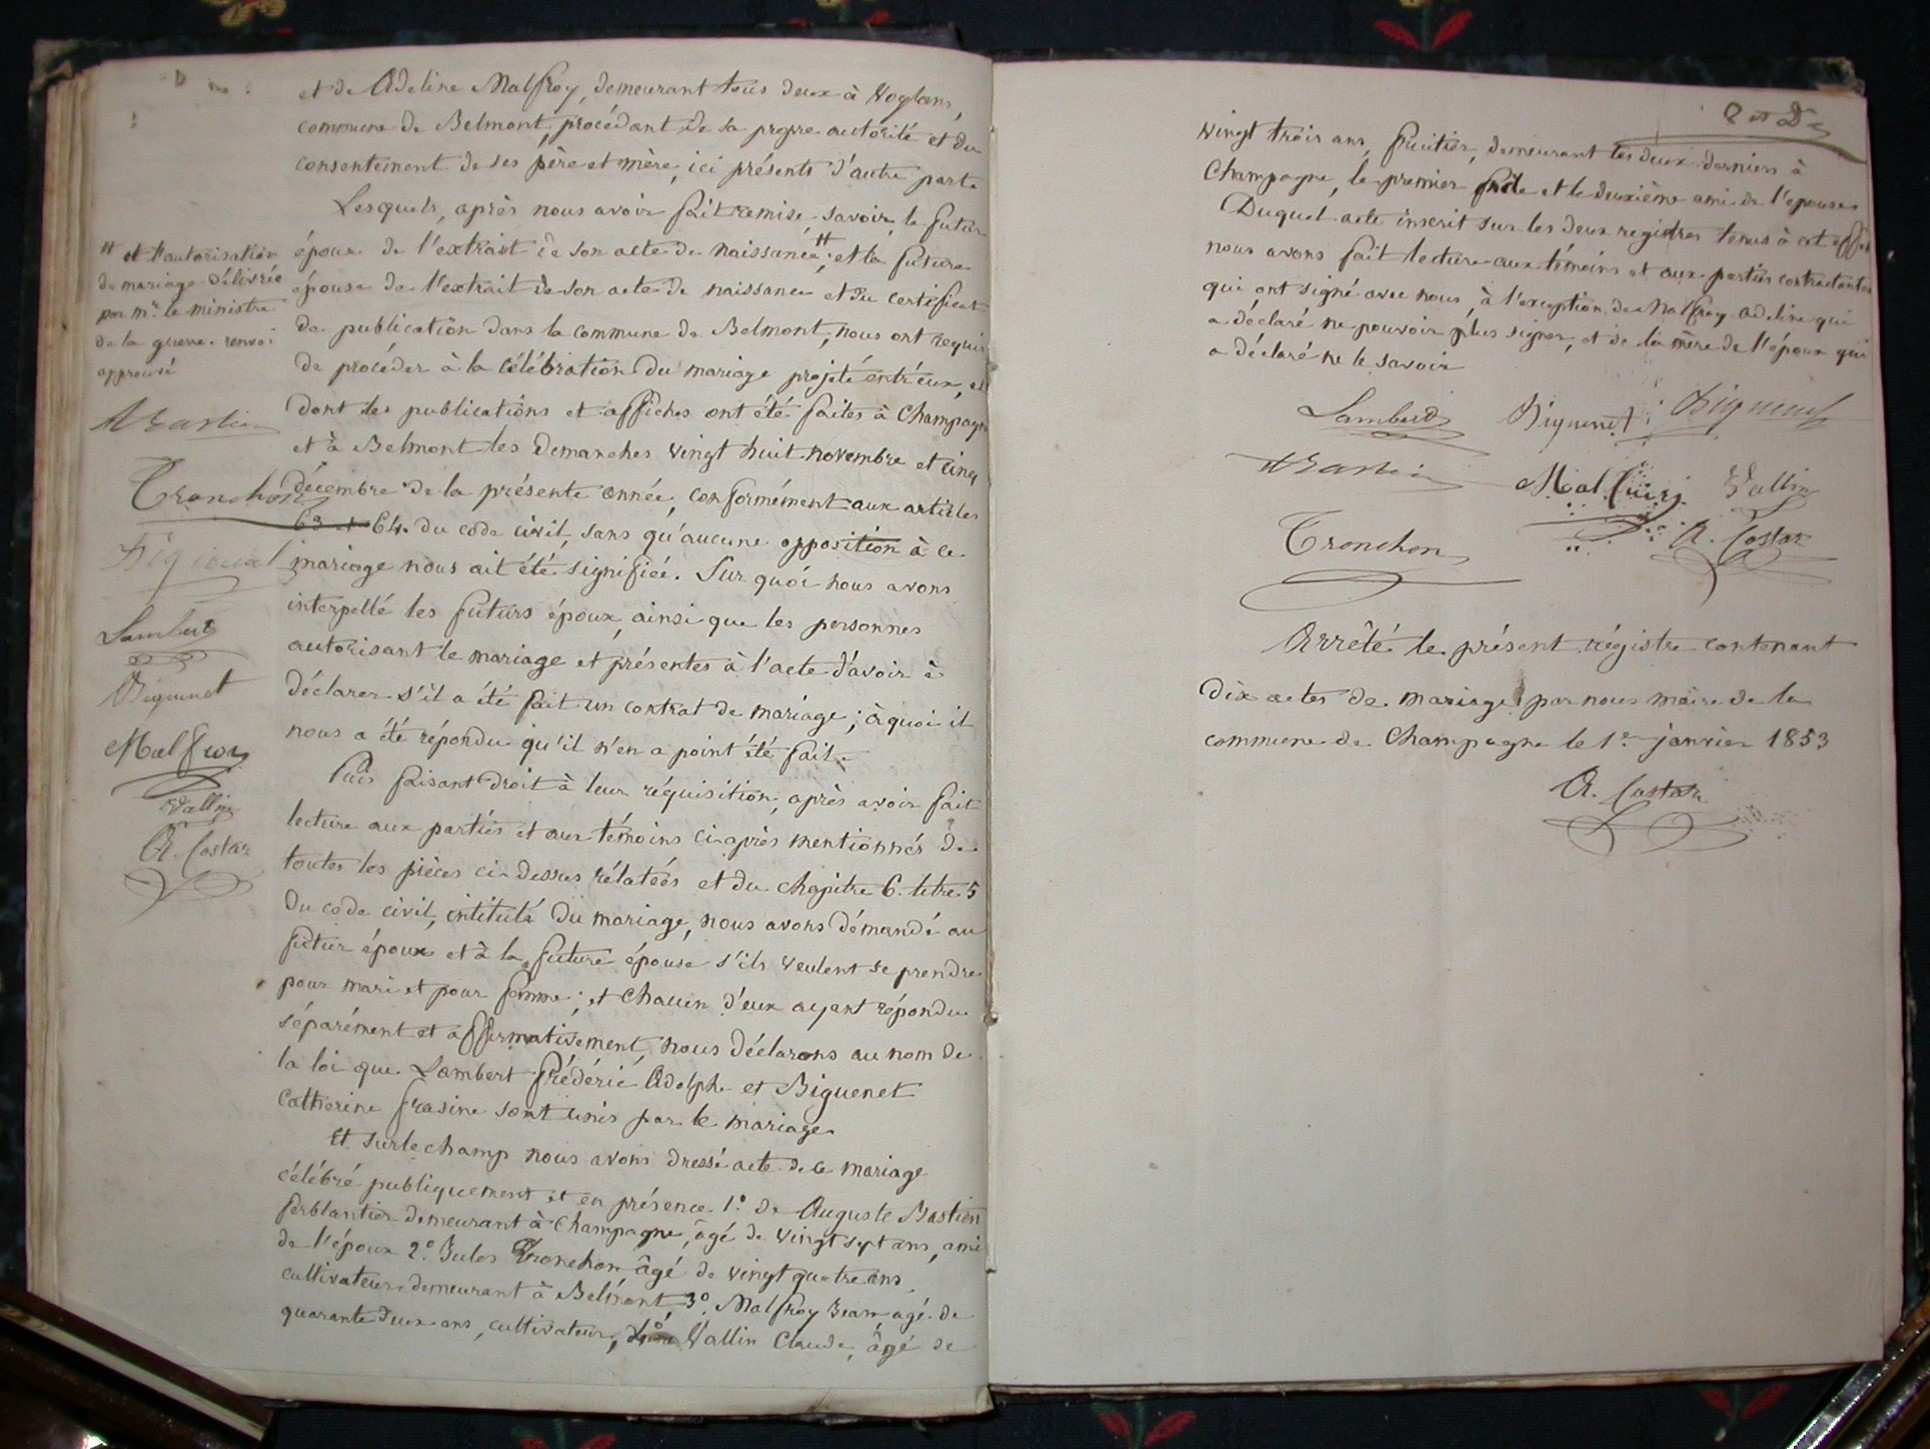 et de Adeline Malfroy, demeurant tous deux à Voglans,
commune de Belmont, procédant de sa propre autorité et du
consentement de ses père et mère, ici présents d'autre parte
Lesquels, après nous avoir fait remise, savoir, le futur
époux de l'extrait de son acte de naissance #; et la future
épouse de l'extrait de son acte de naissance et du certificat
de publication dans la commune de Belmont, nous ont requis
de procéder à la célébration du mariage projeté entr'eux, et
dont les publications et affiches ont été faites à Champagne
et à Belmont les demanches vingt huit novembre et cinq
décembre de la présente année, conformément aux articles
63 et 64 du code civil, sans qu'aucune opposition à ce
mariage nous ait été signifiée. Sur quoi nous avons
interpellé les futurs époux, ainsi que les personnes
autorisant le mariage et présentes à l'acte d'avoir à
déclarer s'il a été fait un contrat de mariage; à quoi il
nous a été répondu qu'il n'en a point été fait.
Puis faisant droit à leur réquisition, après avoir fait
lecture aux parties et aux témoins ci-après mentionnés de
toutes les pièces ci-dessus rélatées et du chapitre 6. titre 5
du code civil, intitulé du mariage, nous avons démandé au
futur époux et à la future épouse s'ils veulent se prendre
pour mari et pour femme; et chacun d'eux ayant répondu
séparément et affirmativement, nous déclarons au nom de
la loi que Lambert Frédéric Adolphe et Biguenet
Catherine Frasine sont unis par le mariage
Et surlechamp nous avons dressé acte de ce mariage
célébré publiquement et en présence 1° de Auguste Bastien
ferblantier demeurant à Champagne, âgé de vingt sept ans, ami
de l'époux 2° Jules Tronchon âgé de vingt quatre ans,
cultivateur demeurant à Belmont, 3° Malfroy Jean, agé de
quarante deux ans, cultivateur, 4° Vallin Claude, âgé de
# et l'autorisation
de mariage délivrée
par mr. le ministre
de la guerre. renvoi
approuvé
A Bastien
Tronchon
Biguenet
Lambert
Biguenet
Malfroi
Vallin
A. Costaz
vingt trois ans, fruitier, demeurant les deux derniers à
Champagne, le premier oncle et le deuxième ami de l'épouse
Duquel acte inscrit sur les deux registres tenus à cet effet
nous avons fait lecture aux témoins et aux parties contractantes
qui ont signé avec nous, à l'exception de Malfroy Adeline qui
a déclaré ne pouvoir plus signer, et de la mère de l'époux qui
a déclaré ne le savoir
Lambert Biguenet Biguenet
A Bastien Malfroi Vallin
Tronchon A. Costaz
Arrêté le présent régistre contenant
dix actes de mariage par nous maire de la
commune de Champagne le 1er janvier 1853
A. Costaz